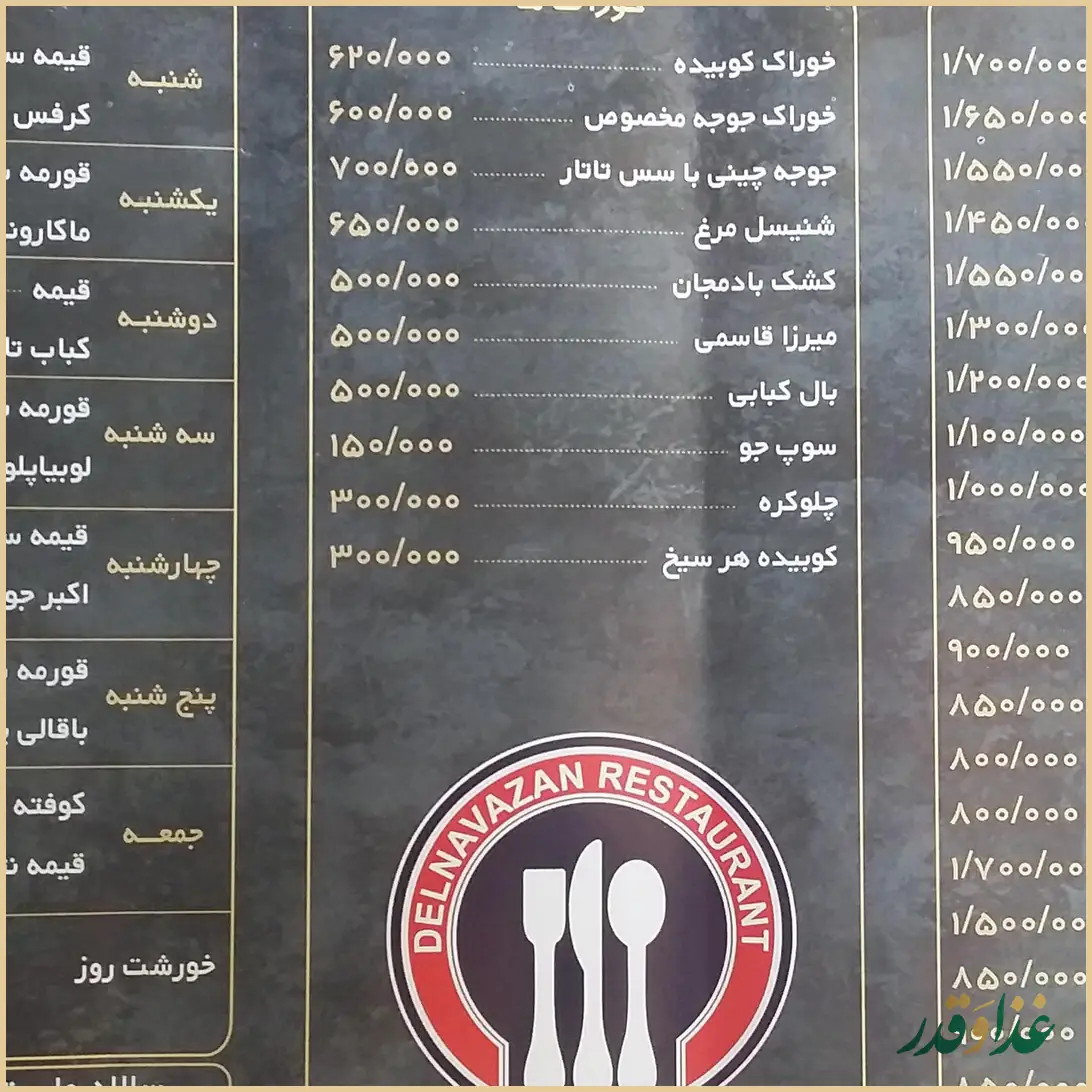 ۱/۷۰۰/۰۰۰
۱/۶۵۰/۰۰۰
۱/۵۵۰/۰۰
۱/۴۵۰/۰۰
۱/۵۵۰/۰۰
۱/۳۰۰/۰۰۰
۱/۲۰۰/۰۰۰
۱/۱۰۰/۰۰۰
۱/۰۰۰/۰۰۰
۹۵۰/۰۰۰
۸۵۰/۰۰۰
۹۰۰/۰۰۰
۸۵۰/۰۰۰
۸۰۰/۰۰۰
۸۰۰/۰۰۰
۱/۷۰۰/۰۰
۱/۵۰۰/۰۰
۸۵۰/۰۰۰
خوراک کوبیده ۶۲۰/۰۰۰
خوراک جوجه مخصوص ۶۰۰/۰۰۰
جوجه چینی با سس تاتار ۷۰۰/۰۰۰
شنیسل مرغ ۶۵۰/۰۰۰
کشک بادمجان ۵۰۰/۰۰۰
میرزا قاسمی ۵۰۰/۰۰۰
بال کبابی ۵۰۰/۰۰۰
سوپ جو ۱۵۰/۰۰۰
چلوکره ۳۰۰/۰۰۰
کوبیده هر سیخ ۳۰۰/۰۰۰
DELNAVAZAN RESTAURANT
شنبه
قیمه
کرفس
یکشنبه
قورمه
ماکارون
دوشنبه
قیمه
کباب
سه شنبه
قورمه
لوبیاپلو
چهارشنبه
قیمه
اکبر
پنج شنبه
قورمه
باقالی
جمعه
کوفته
قیمه
خورشت روز
غذا و قدر